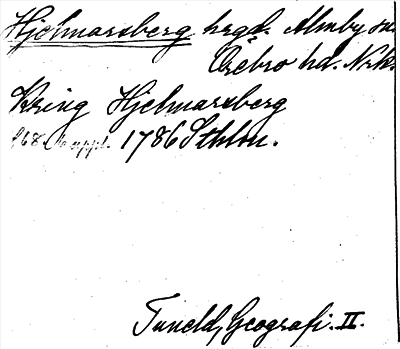 Hjelmarsberg hrgd. Almby sn.
Örebro hd. Nrk.
Kring Hjelmarsberg
1786 Sthlm.
Tuneld, Geografi. II.